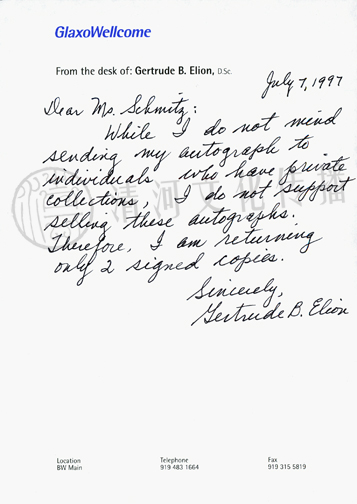 GlaxoWellcome
From the desk of: Gertrude B. Elion, D.Sc.
July 7, 1997
Dear Ms. Schmitz:
While I do not mind
sending my autograph to
individuals who have private
collections, I do not support
selling these autographs.
Therefore, I am returning
only 2 signed copies.
Sincerely,
Gertrude B. Elion
Location
BW Main
Telephone
919 483 1664
Fax
919 315 5819